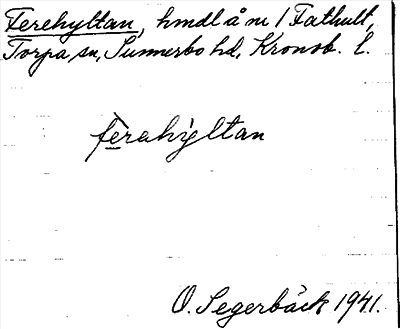 Ferehyltan, hmdl å nr 1 Fathult,
Torpa sn, Sunnerbo hd, Kronob. l.
ferahyltan
O. Segerbäck 1941.